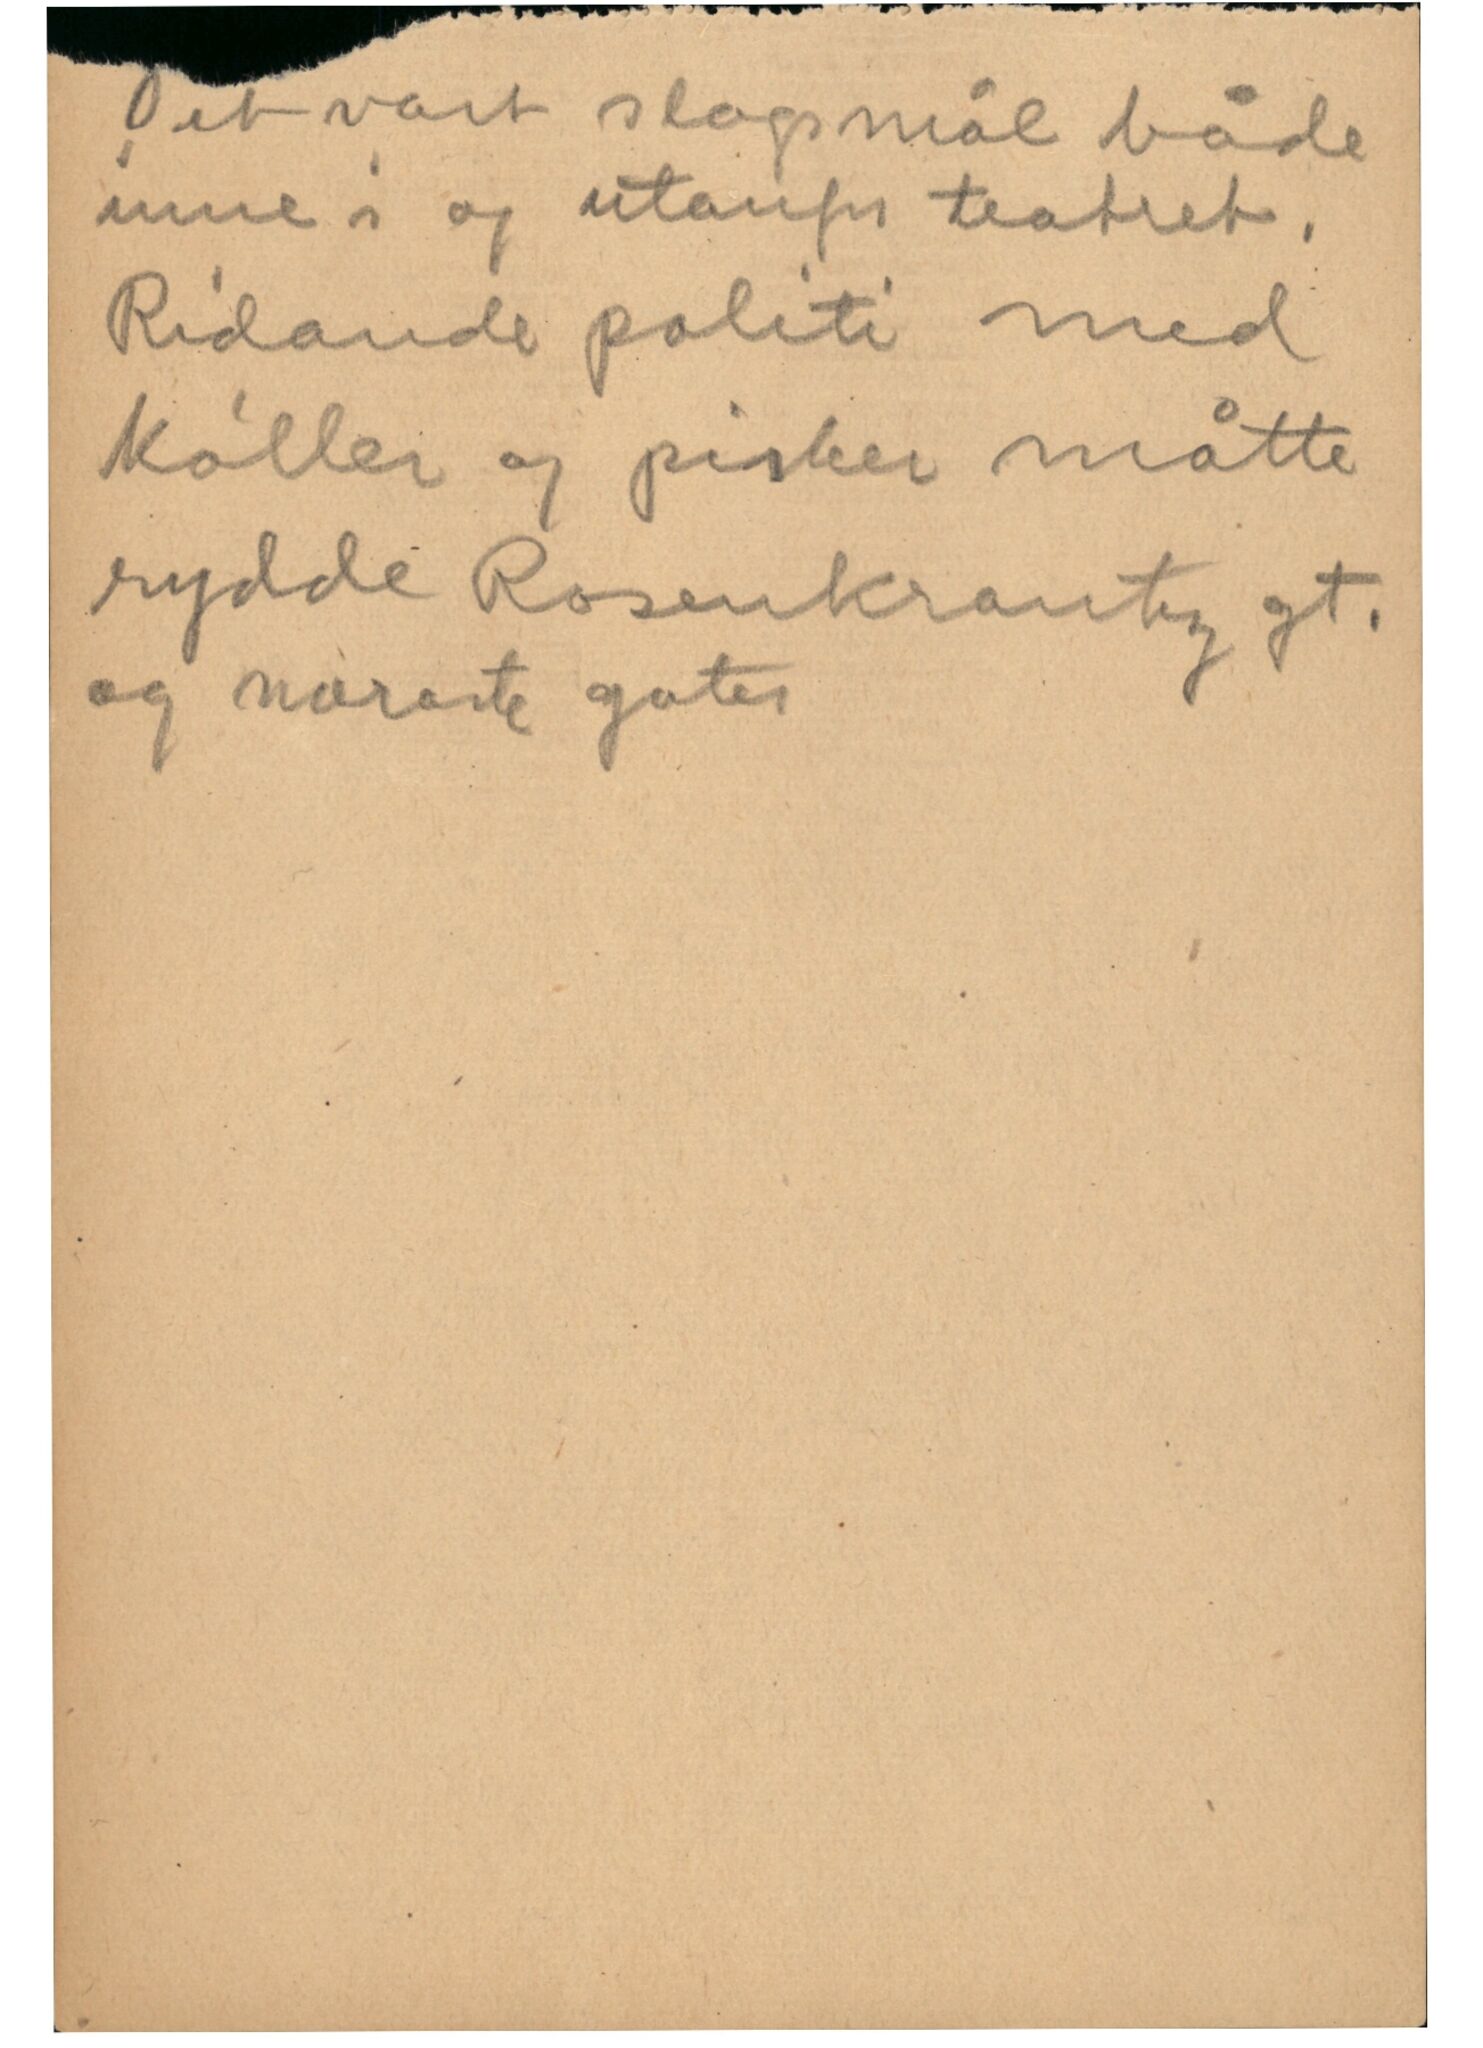 Det vart slagsmål både
inne i og utanfor teatret.
Ridande politi med
køller og pisker måtte
rydde Rosenkrantz gt.
og næraste gater